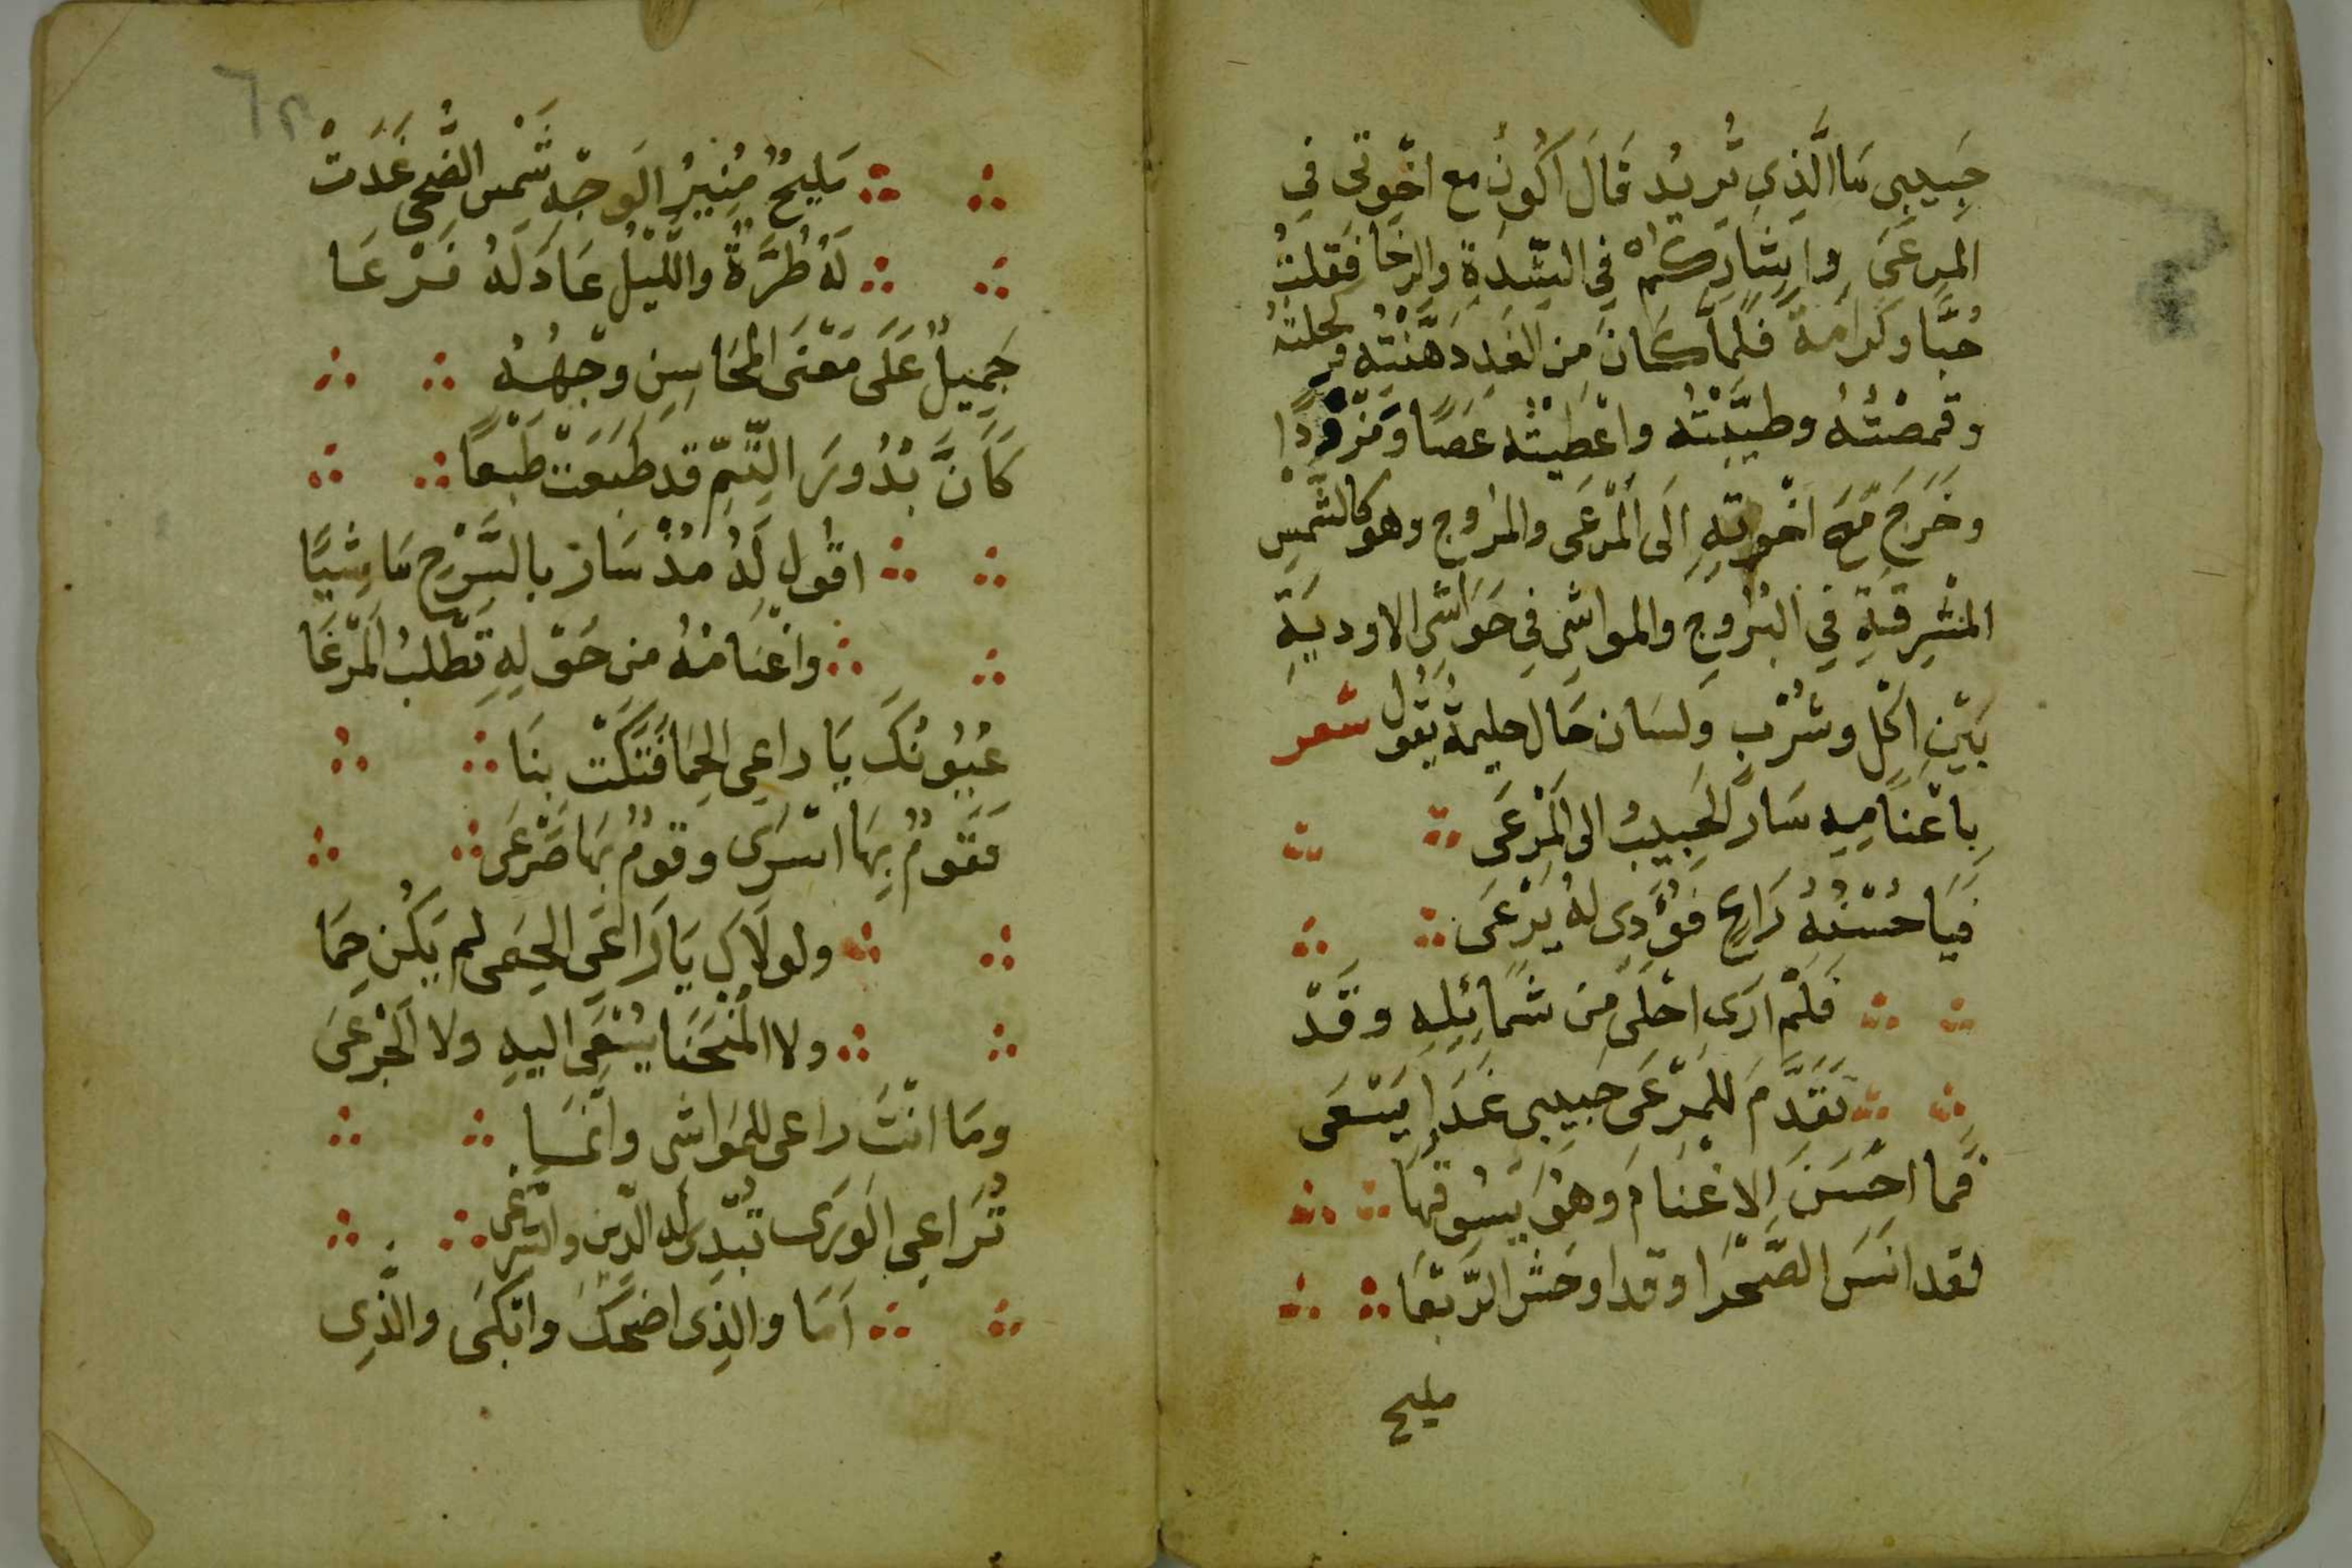 حَبِيبِي مَا الَّذِي تُرِيْدُ قَالَ اَكُونُ مع اخْوتى فِي
المرعَى واشاركهم فِي الشِّدةِ والرخَا فَقلتُ
حُبًّا وكرَامَةً فلمَّا كَانَ مِنَ الغَدِ دَهَّنْتُه وكحلتهُ
وقمصْتُهُ وطيَّبْتُه واعْطيْتُه عَصًا وَمِزْوَدًا
وخَرَجَ مَعَ اخْوتِهِ الَى الْمَرْعَى والمرُوجِ وهو كالشَّمْسِ
المشْرِقَةِ فِي البُرُوجِ والمواشِي فِي حَوَاشِي الاوديَةِ
بَيْنِ اكْلٍ وشُرْبٍ ولسَان حَال حليمةُ يَقولُ شعر
بِاغْنَامِهِ سَارَ الحَبِيبُ الى المَرْعَى
فيَا حُسْنَهُ رَاعٍ فؤَدِى لهُ يَرْعَى
فلَمْ ارَى احْلَى مِنْ شمَائِلِهِ وقَدْ
تَقَدَّمَ للمَرْعَى حَبِيبِى غَدَا يَسْعَى
فَما احْسَنَ الاغْنَامَ وهْوَ يَسُوقهَا
لقد انَسَ الصَّحْرَا وقد اوحَش الرَّبْعَا
مليح
مَلِيحٌ مُنِيرُ الوَجهِ شَمْس الضُّحى غَدَتْ
لَهُ طُرَّةٌ واللَّيْلُ عَادَ لَهُ فَرْعَا
جَمِيلٌ عَلَى مَعْنَى الْمَحَاسِنِ وَجْهُهُ
كَاَنَّ بُدُورَ التِّمِّ قد طَبَعَتْ طَبْعًا
اقُول لَهُ مُذْ سَارَ بالسَّرْحِ مَاشِيًا
واغْنَامُهُ من حَوْلِهِ تَطْلبُ الْمَرْعَا
عُيُونُكَ يَا راعِى الحِمَا فَتَكَتْ بِنَا
فَقَوْمٌ بِهَا اسْرَى وقَوْمٌ بهَا صَرْعَى
ولولَاكَ يَا رَاعَى الحِمَى لم يَكُن حِمَا
ولا المُنْحَنَا يُسْعَى اليهِ ولا الْجَرْعَى
ومَا انْتَ راعى للمَوَاشى وانمَا
تُرَاعِى الوَرَى تُبْدِى لهُ الدِّين والشرعى
اَمَا والذِى اضحَكَ وابْكَى والَّذِى